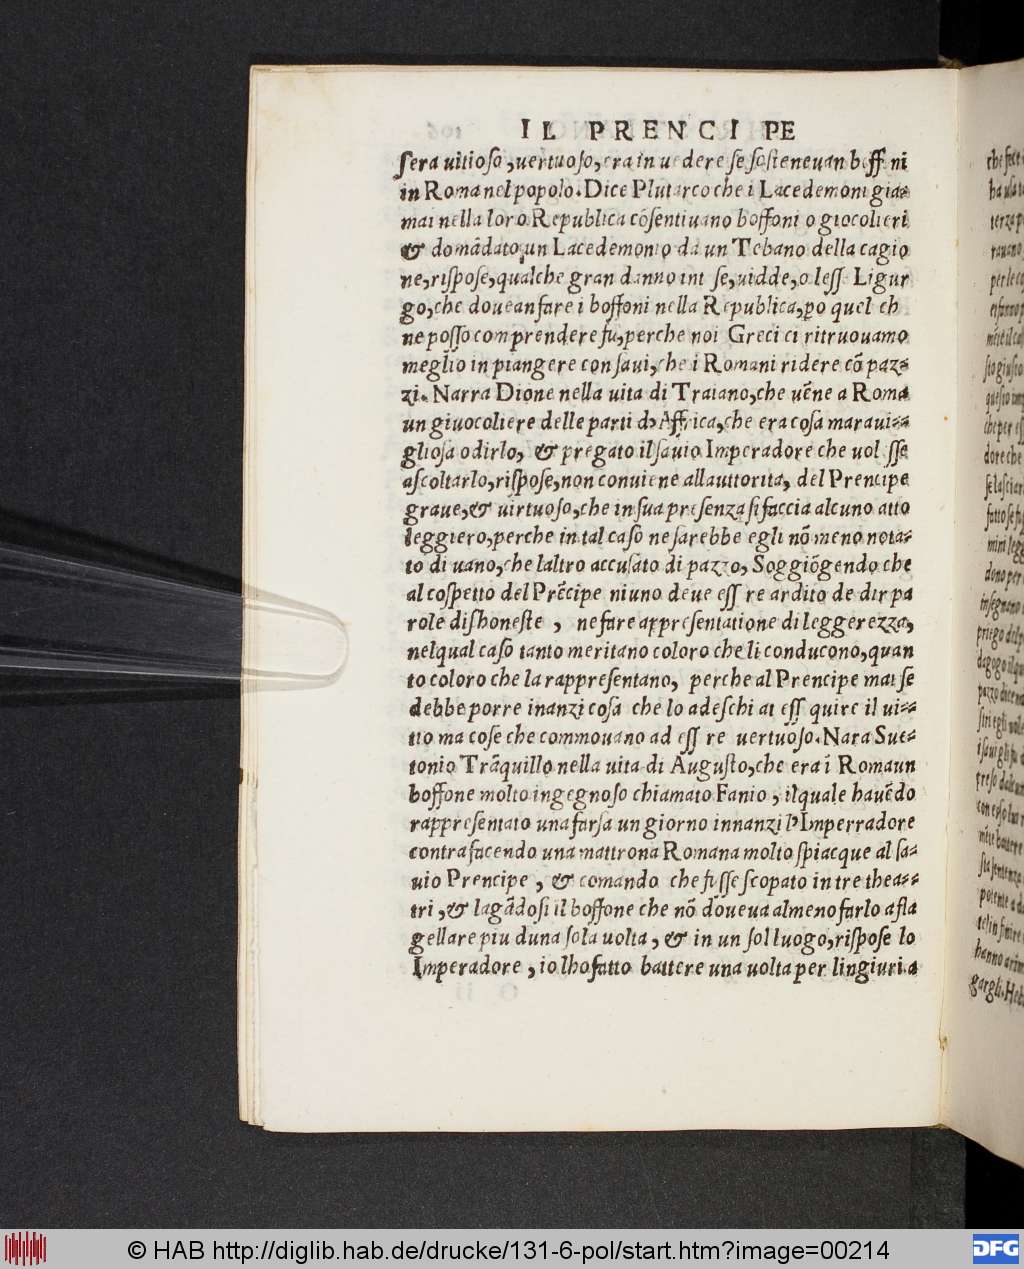 IL PRENCIPE
sera uitioso, uertuoso, era in uedere se sosteneuan boffoni
in Roma nel popolo. Dice Plutarco che i Lacedemoni gia-
mai nella loro Republica cõsentiuano boffoni o giocolieri
& domãdato, un Lacedemonio da un Tebano della cagio
ne, rispose, qualche gran danno int se, uidde, o less Ligur
go, che douean fare i boffoni nella Republica, ꝑo quel ch
ne posso comprendere fu, perche noi Greci ci ritruouamo
meglio in piangere con saui, che i Romani ridere cõ paz-
zi. Narra Dione nella uita di Traiano, che uẽne a Roma
un giuocoliere delle parti d'Affrica, che era cosa maraui-
gliosa odirlo, & pregato il sauio Imperadore che uol sse
ascoltarlo, rispose, non conuiene all auttorita, del Prencipe
graue, & uirtuoso, che in sua presenza si faccia alcuno atto
leggiero, perche in tal caso ne sarebbe egli nõ meno nota-
to di uano, che laltro accusato di pazzo, Soggiõgendo che
al cospetto del Prẽcipe niuno deue ess re ardito de dir pa
role dishoneste, ne fare appresentatione di leggerezza,
nelqual caso tanto meritano coloro che li conducono, quan
to coloro che la rappresentano, perche al Prencipe mai se
debbe porre inanzi cosa che lo adeschi at ess quire il ui-
tio ma cose che commouano ad ess re uertuoso. Nara Sue-
tonio Trãquillo nella uita di Augusto, che era ĩ Roma un
boffone molto ingegnoso chiamato Fanio, ilquale hauẽdo
rappresentato una farsa un giorno innanzi l'Imperradore
contrafacendo una mattrona Romana molto spiacque al sa-
uio Prencipe, & comando che fusse scopato in tre thea-
tri, & lagãdosi il boffone che nõ doueua almeno farlo a fla
gellare piu duna sola uolta, & in un sol luogo, rispose lo
Imperadore, io lho fatto battere una uolta per lingiuria
© HAB http://diglib.hab.de/drucke/131-6-pol/start.htm?image=00214
DFG